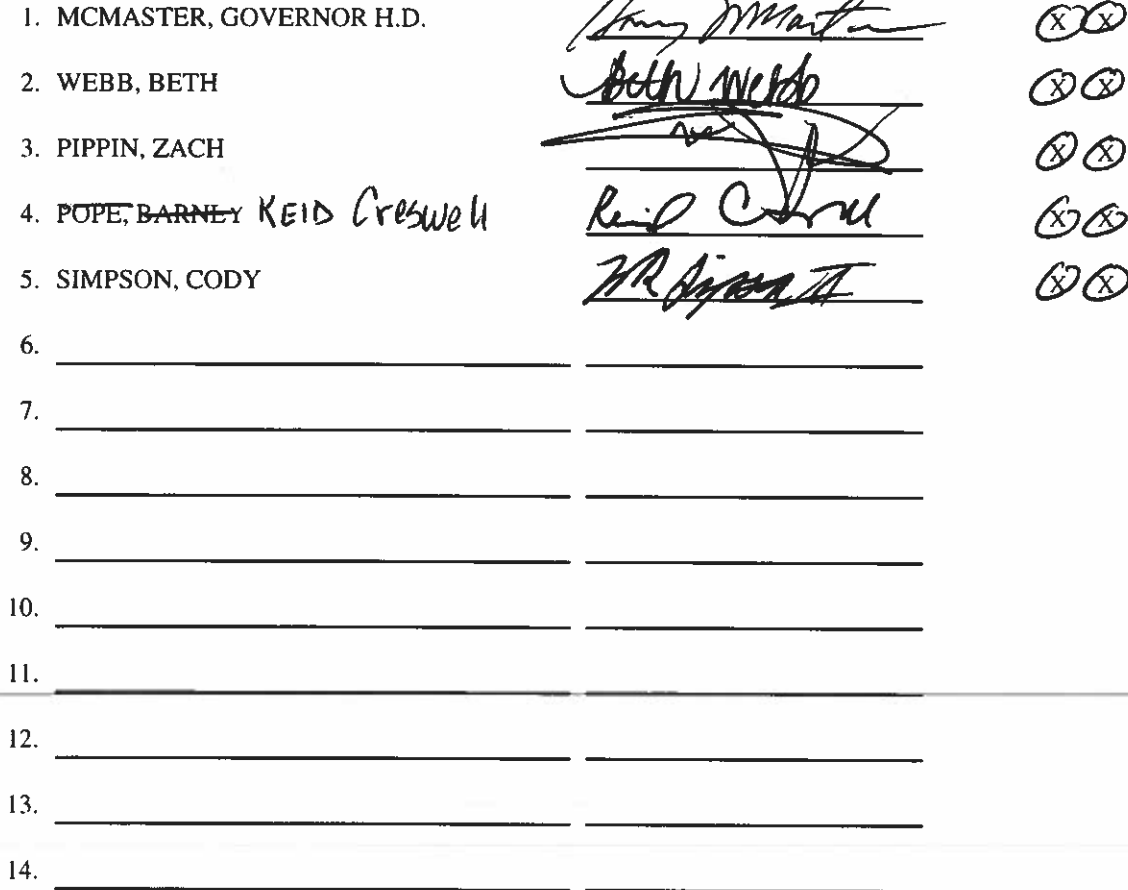 1. MCMASTER, GOVERNOR H.D. X X
2. WEBB, BETH Beth Webb X X
3. PIPPIN, ZACH X X
4. POPE, BARNLY KEID Creswell X X
5. SIMPSON, CODY X X
6.
7.
8.
9.
10.
11.
12.
13.
14.